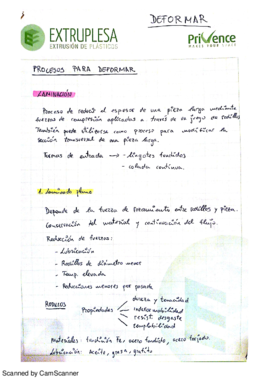 DEFORMAR
EXTRUPLESA
EXTRUSIÓN DE PLÁSTICOS
PriVence
PROCESOS PARA DEFORMAR
LAMINACIÓN
Proceso de reducir el espesor de una pieza larga mediante
fuerzas de compresión aplicadas a través de un juego de rodillos
También puede utilizarse como proceso para modificar la
sección transversal de una pieza larga.
Formas de entrada → - lingotes fundidos
- colada continua.
1. Laminado plano
Depende de la fuerza de rozamiento entre rodillos y pieza.
Conservación del material y continuación del flujo.
Reducción de fuerzas:
- Lubricación
- Rodillos de diámetro menor
- Temp. elevada
- Reducciones menores por pasada
RODILLOS Propiedades
dureza y tenacidad
indeformabilidad
resist desgaste
templabilidad
Materiales: fundición Fe, acero fundido, acero forjado.
Lubricación: aceite, grasa, grafito
Scanned by CamScanner